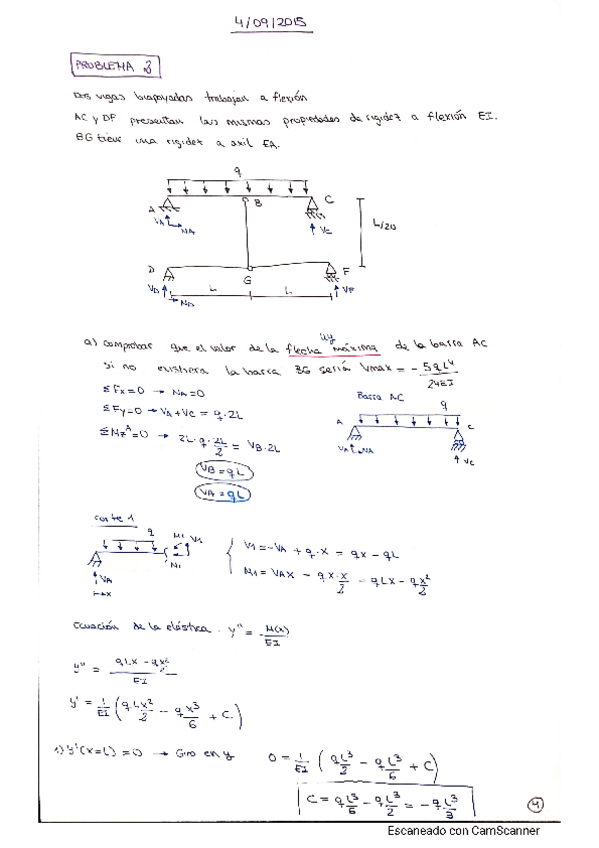 4/09/2015
PROBLEMA 3
Dos vigas biapoyadas trabajan a flexión
AC y DF presentan las mismas propiedades de rigidez a flexión EI.
BG tiene una rigidez a axil EA.
q
A B C
VA NA VC
L/20
D G F
VD L L VF
ND
uy
a) comprobar que el valor de la flecha máxima de la barra AC
si no existiera la barra BG seria Vmax = - 5qL⁴/24EI
ΣFx=0 → NA=0
Barra AC
ΣFy=0 → VA+VC = q·2L
q
A C
ΣMz^A=0 → 2L·q·2L/2 = VB·2L
VA NA VC
VB = qL
VA = qL
corte 1
q M1 V1
N1
VA
x
V1=-VA + q·x = qx - qL
M1 = VAx - qx·x/2 = qLx - qx²/2
Ecuación de la elástica. y'' = M(x)/EI
y'' = qLx - qx²/EI
y' = 1/EI (qLx²/2 - qx³/6 + C)
1) y'(x=L)=0 → Giro en y 0 = 1/EI (qL³/2 - qL³/6 + C)
C = qL³/6 - qL³/2 = -qL³/3
4
Escaneado con CamScanner